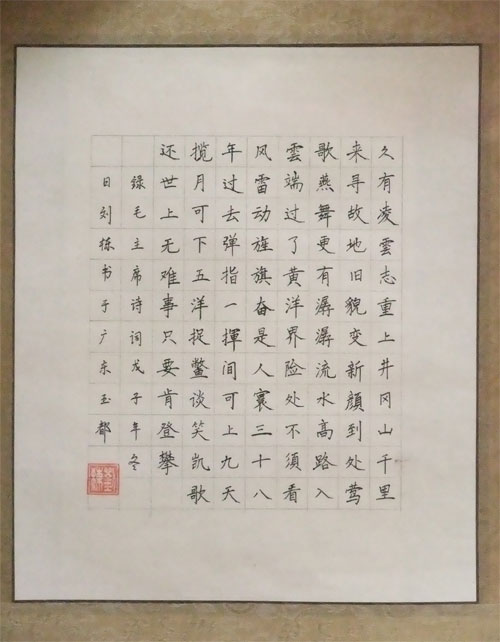 久有凌雲志重上井冈山千里
来寻故地旧貌变新顔到处莺
歌燕舞更有潺潺流水高路入
雲端过了黄洋界险处不須看
风雷动旌旗奋是人寰三十八
年过去弹指一揮间可上九天
揽月可下五洋捉鳖谈笑凯歌
还世上无难事只要肯登攀
録毛主席诗词戊子年冬
日刘栋书于广东玉都